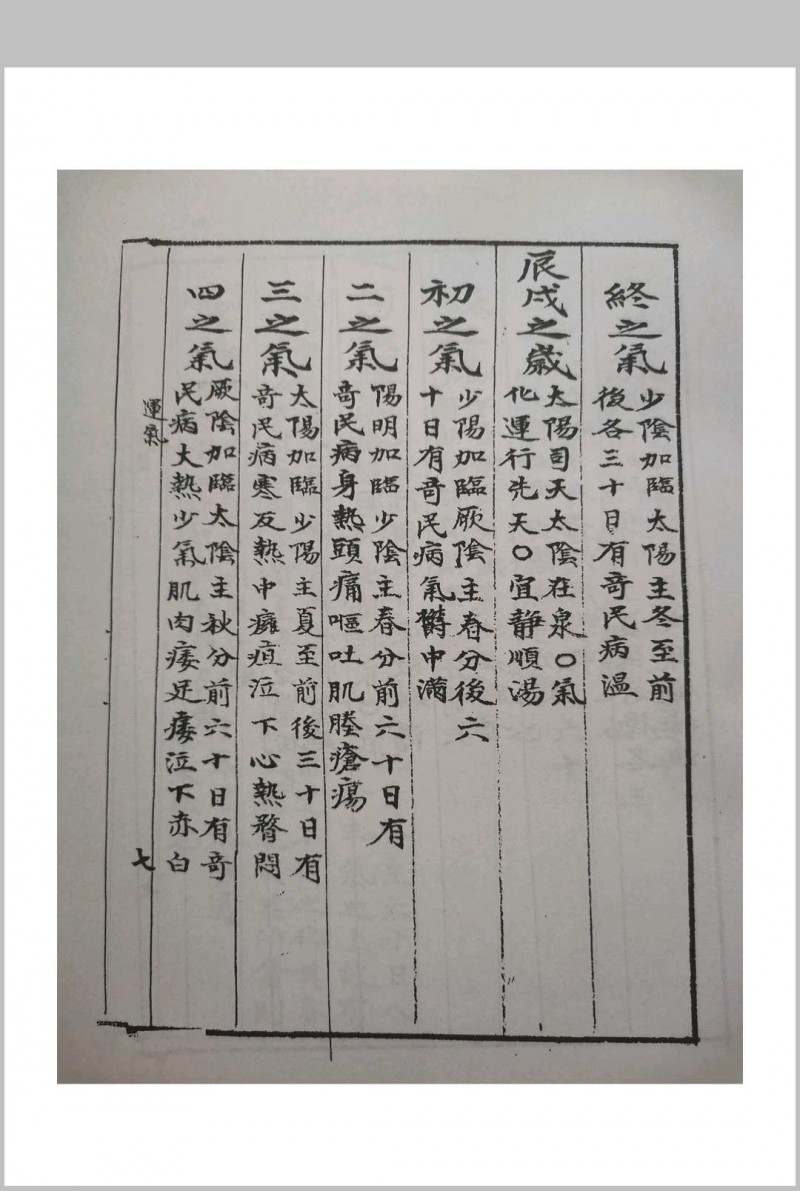 終之氣
少陰加臨太陽主冬至前
後各三十日有奇民病温
辰戌之歲
太陽司天太陰在泉○氣
化運行先天○宜静順湯
初之氣
少陽加臨厥陰主春分後六
十日有奇民病氣鬱中滿
二之氣
陽明加臨少陰主春分前六十日有
奇民病身熱頭痛嘔吐肌膝瘡瘍
三之氣
太陽加臨少陽主夏至前後三十日有
奇民病寒反熱中癰疽泣下心熱瞀悶
四之氣
厥陰加臨太陰主秋分前六十日有奇
民病大熱少氣肌肉痿足痿泣下赤白
運氣
七